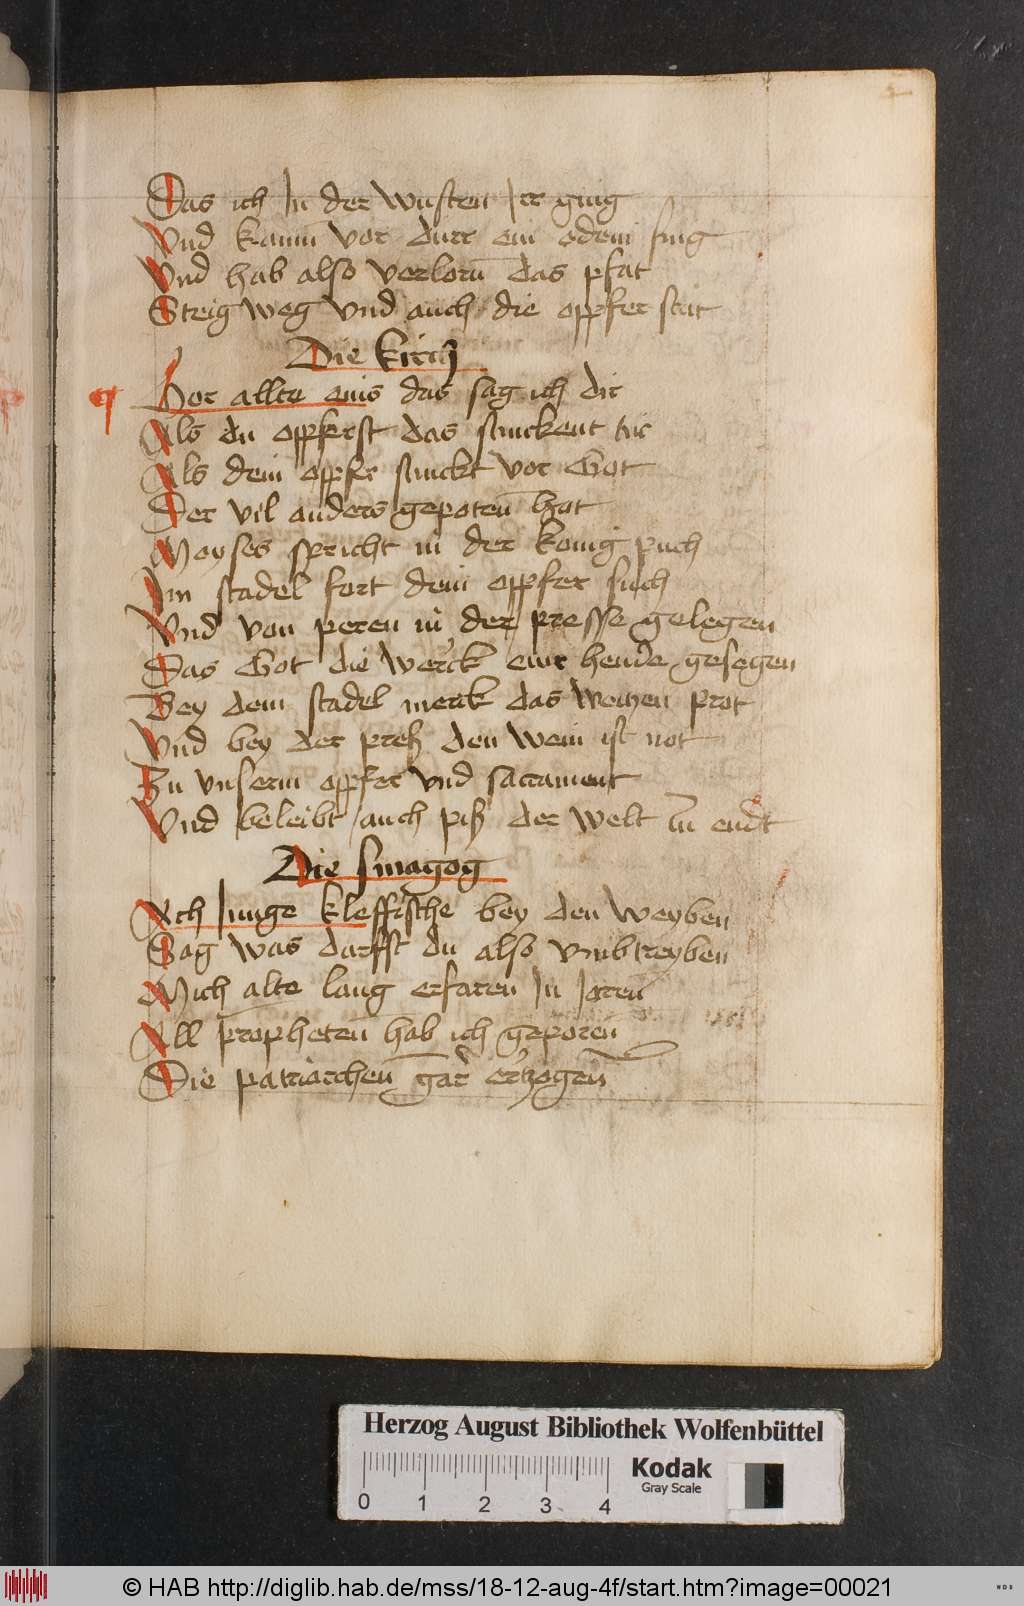 Das ich In der wusten Irr ging
Vnd kaum vor durr ein odem fing
Vnd hab also verlorn das pfat
Steig weg vnd auch die opfer stat
Die kirch
Hor allte eins das sag ich dir
Als du opfferst das stinckent tir
Als dein opfer stinckt vor Got
Der vil anders gepoten hat
Moyses spricht in der konig puch
Im stadel fort dein opffer such
Vnd von peren in der presse gelegen
Das Got die werck ewr hende gesegen
Bey dem stadel merck das weitzen prot
Vnd bey der preß den wein ist not
Zu vnserm opffer vnd sacrament
Vnd beleibt auch piß der welt in endt
Die sinagog
Ach Junge kleffische bey den weyben
Sag was darfst du also vmbtreyben
Mich alte lang erfaren In Jaren
All propheten hab ich geporen
Die patriarchen gar erzogen
Herzog August Bibliothek Wolfenbüttel
0 1 2 3 4
Kodak
Gray Scale
© HAB http://diglib.hab.de/mss/18-12-aug-4f/start.htm?image=00021